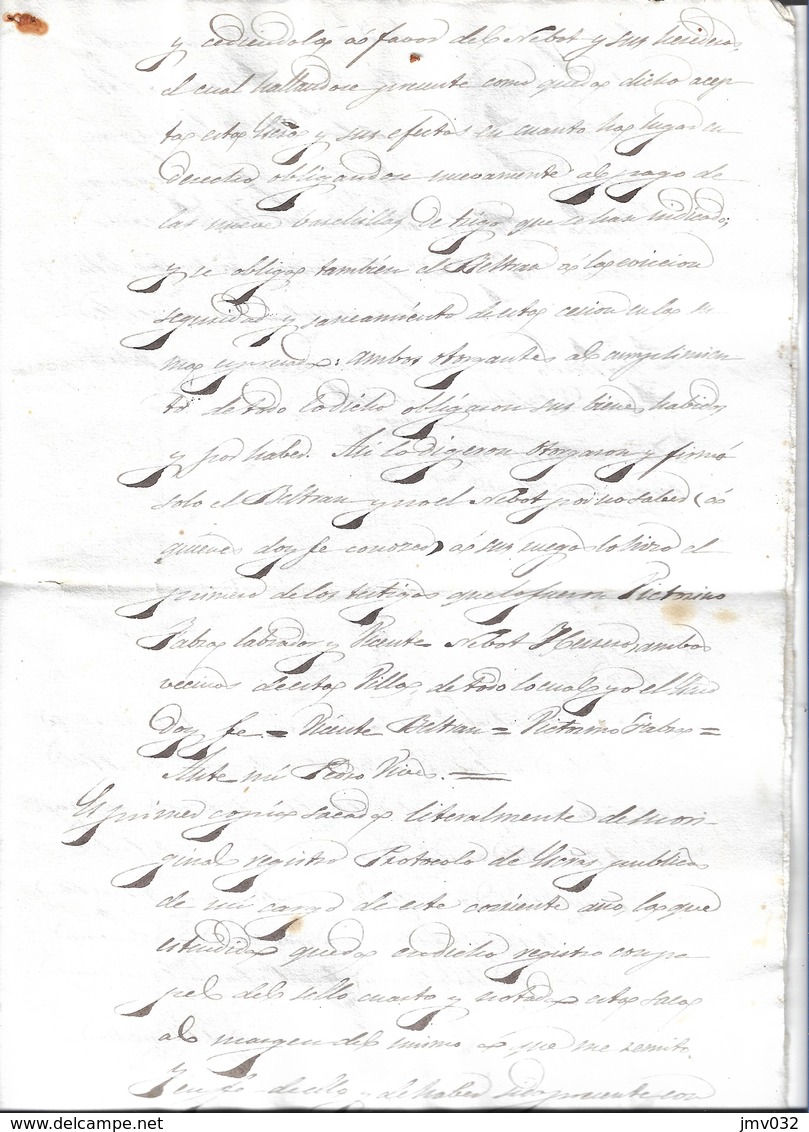 y cediendolas á favor del Nebot y sus herederos,
el cual hallandose presente como queda dicho acep
ta esta Escra y sus efectos en cuanto ha lugar en
derecho, obligandose nuevamente al pago de
las nueve barchillas de trigo que se han indicado;
y se obliga tambien el Beltran á la eviccion
seguridad y saneamiento de esta cesion en la
ambos otorgantes al cumplimien
to de todo lo dicho obligaron sus bienes habidos
y por haber. Asi lo digeron otorgaron y firmó
solo el Beltran y no el Nebot por no saber (á
quienes doy fe conozco) á sus ruegos lo hizo el
primero de los testigos que lo fueron Victorino
Fabra labrador y Vicente Nebot Herrero, ambos
vecinos de esta Villa, de todo lo cual yo el Esno
doy fe = Vicente Beltran = Victorino Fabra =
Ante mi Pedro Vives. =
Es primera copia sacada literalmente de su ori-
ginal registro Protocolo de Escras publicas
de mi cargo de este corriente año, la que
estendida queda en dicho registro en pa
pel del sello cuarto y notada esta saca
al margen del mismo á que me remito.
Y en fe de ello y de haber sido presente con
delcampe.net
jmv032